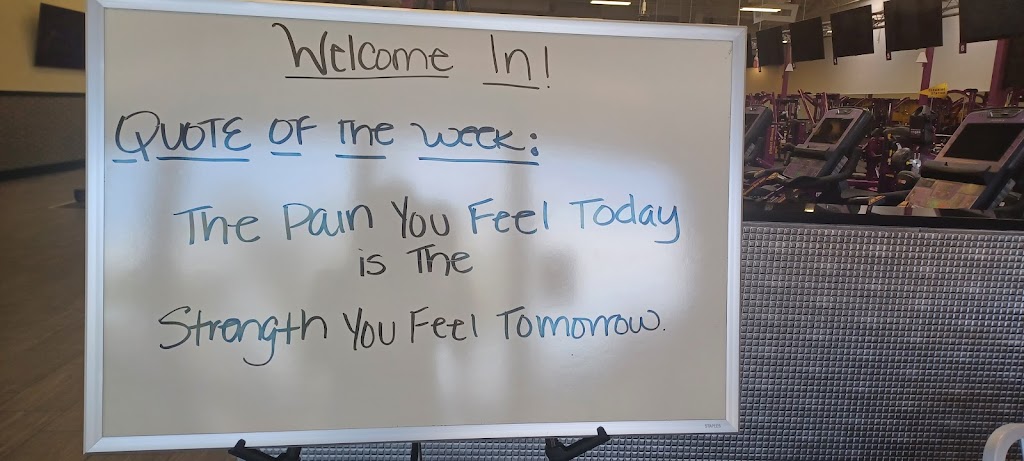 Welcome In!
Quote of the week:
The Pain You Feel Today
is The
Strength You Feel Tomorrow.
STAPLES